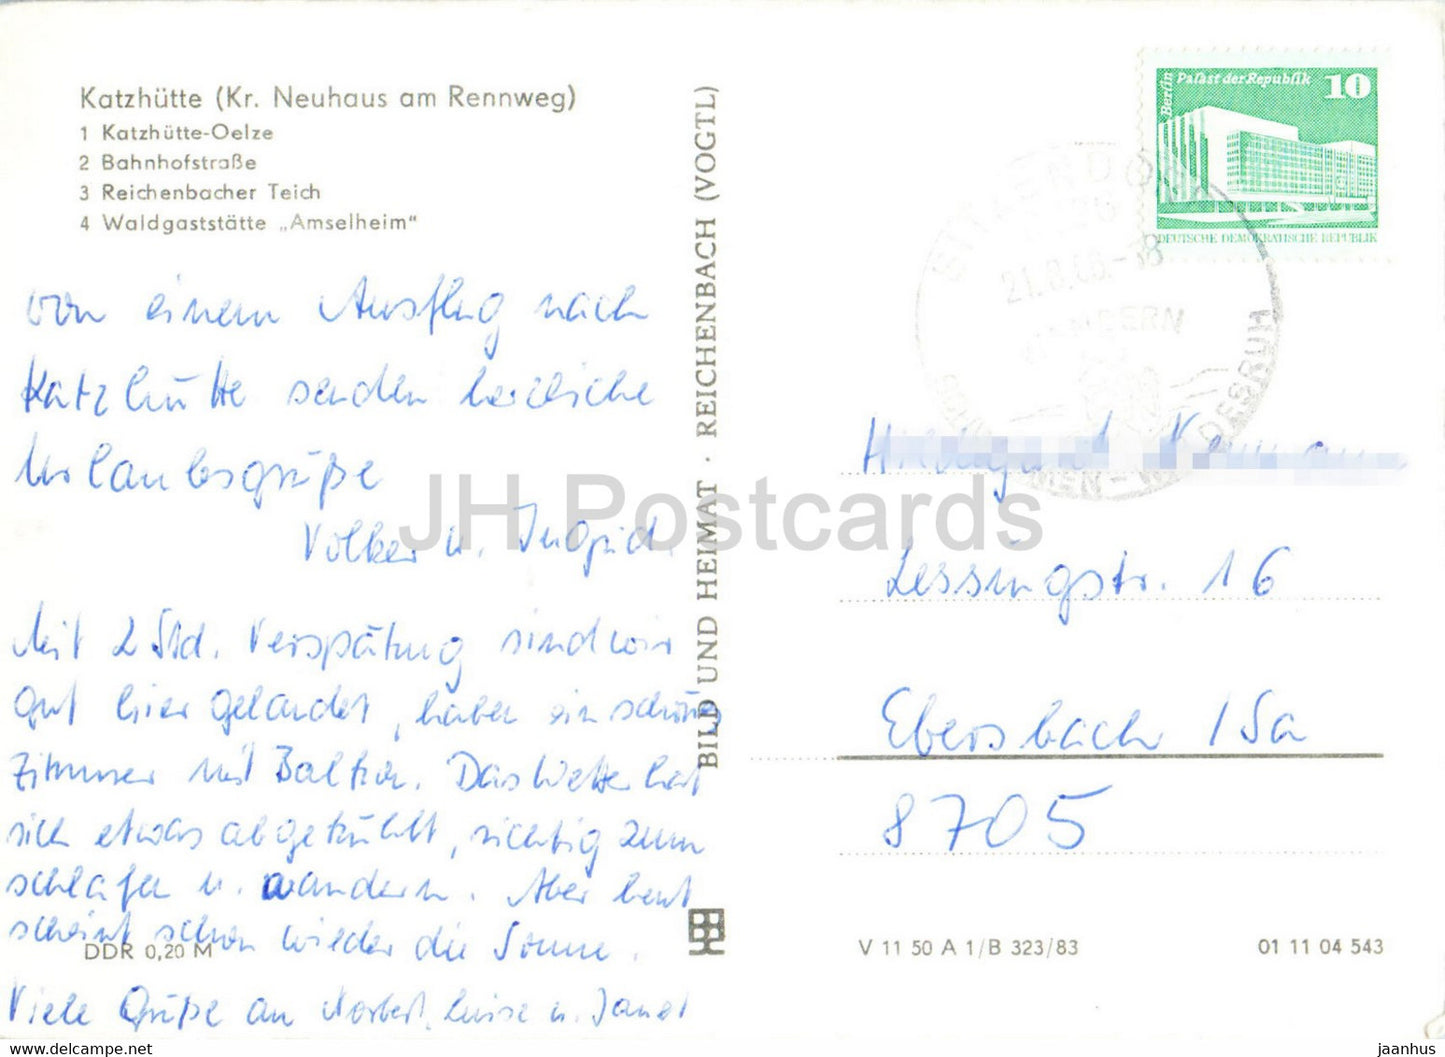 Katzhütte (Kr. Neuhaus am Rennweg)
1 Katzhütte-Oelze
2 Bahnhofstraße
3 Reichenbacher Teich
4 Waldgaststätte „Amselheim"
von einem Ausflug nach
Katzhütte senden herzliche
Urlaubsgrüße
Volker u. Ingrid.
Mit 2 Std. Verspätung sind wir
gut hier gelandet, haben ein schönes
Zimmer mit Balkon. Das Wetter hat
sich etwas abgekühlt, richtig zum
schlafen u. wandern. Aber heut
scheint schon wieder die Sonne.
Viele Grüße an Norbert, Luise u. Janet
DDR 0,20 M
BILD UND HEIMAT · REICHENBACH (VOGTL)
Berlin Palast der Republik 10
DEUTSCHE DEMOKRATISCHE REPUBLIK
SITZENDORF
WANDERN
Lessingstr. 16
Ebersbach / Sa
8705
V 11 50 A 1/B 323/83
01 11 04 543
JH Postcards
https://jhpostcards.com
jaanhus